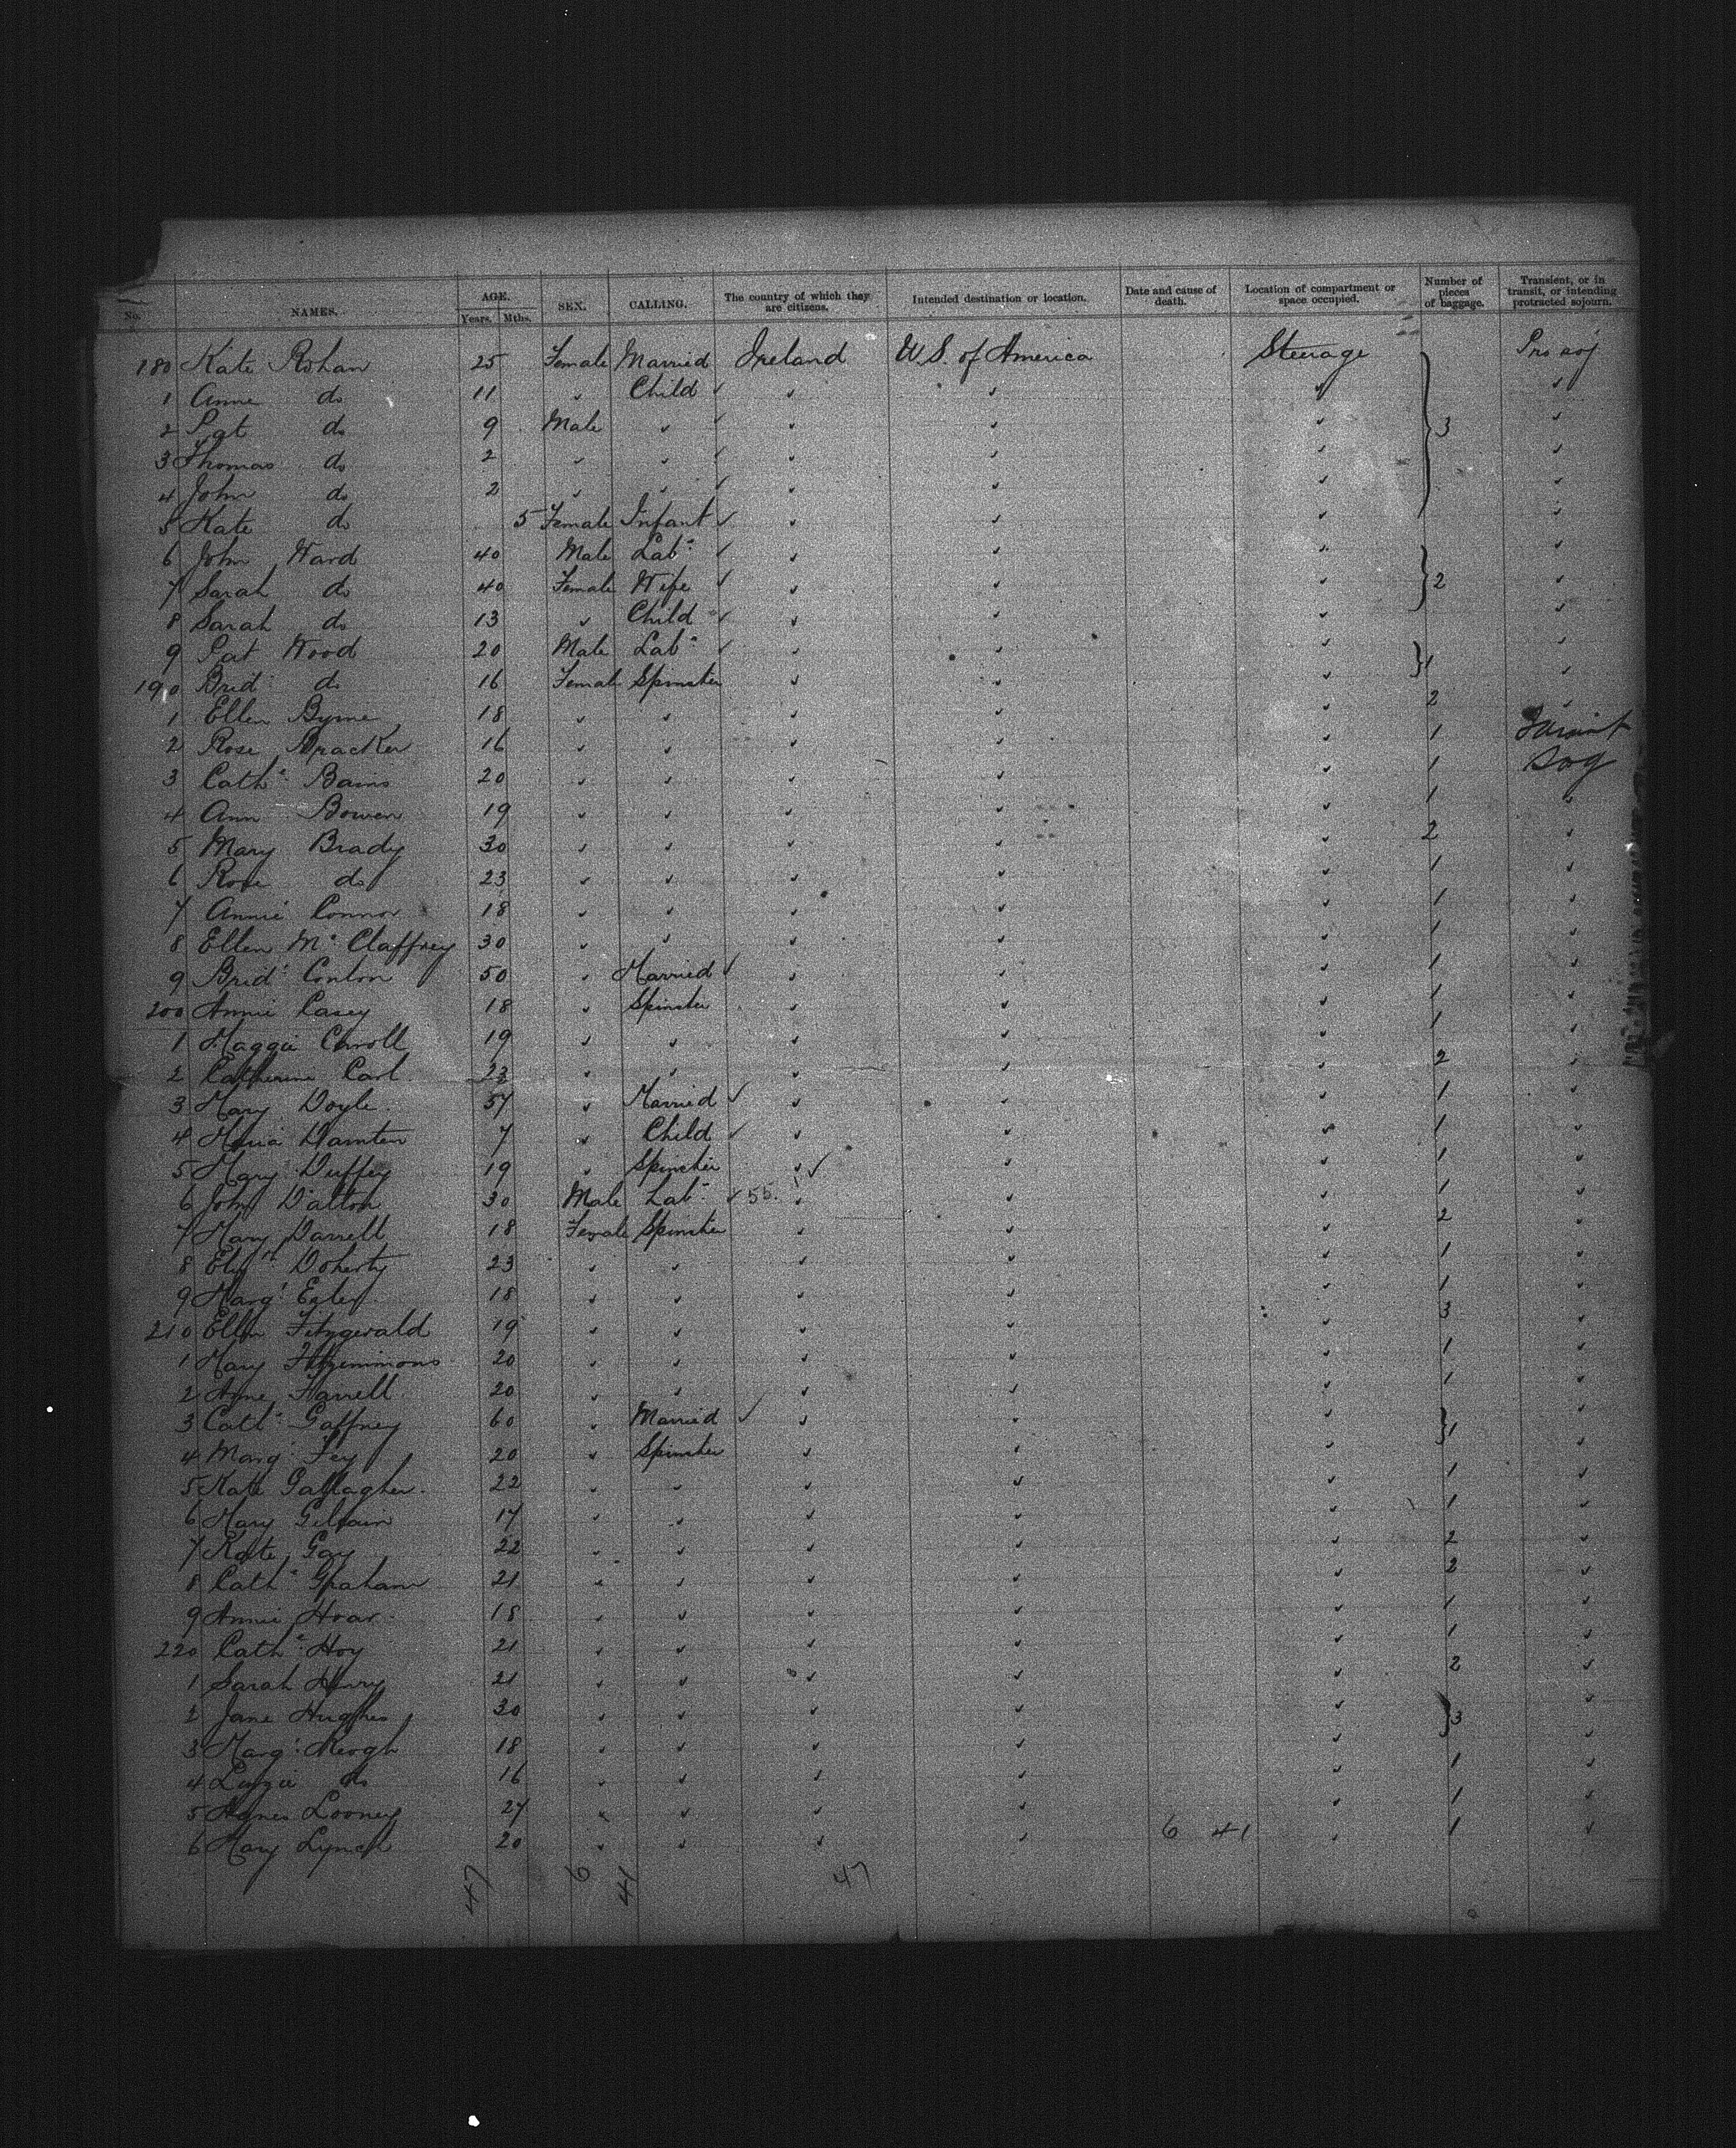 No. NAMES. AGE. Years. Mths. SEX. CALLING. The country of which they are citizens. Intended destination or location. Date and cause of death. Location of compartment or space occupied. Number of pieces of baggage. Transient, or in transit, or intending protracted sojourn.
180 Kate Rohan 25 Female Married Ireland U.S. of America Steerage Pro soj
1 Anne do 11 " Child ✓ " " " "
2 Pat do 9 Male " ✓ " " " 3 "
3 Thomas do 2 " " ✓ " " " "
4 John do 2 " " ✓ " " " "
5 Kate do 5 Female Infant ✓ " " " "
6 John Ward 40 Male Labr ✓ " " " "
7 Sarah do 40 Female Wife ✓ " " " 2 "
8 Sarah do 13 " Child ✓ " " " "
9 Pat Wood 20 Male Labr ✓ " " " 1 "
190 Brid do 16 Female Spinster " " " "
1 Ellen Byrne 18 " " " " " 2 "
2 Rose Bracken 16 " " " " " 1
3 Cathe Bains 20 " " " " " 1 Soj
4 Ann Bowen 19 " " " " " 1 "
5 Mary Brady 30 " " " " " 2 "
6 Rose do 23 " " " " " 1 "
7 Annie Connor 18 " " " " " 1 "
8 Ellen Mc Claffrey 30 " " " " " 1 "
9 Bridt Conlon 50 " Married ✓ " " " 1 "
200 Annie Casey 18 " Spinster " " " 1 "
1 Maggie Carroll 19 " " " " " 1 "
2 Catherine Carl 23 " " " " " 2 "
3 Mary Doyle 57 " Married ✓ " " " 1 "
4 Maria 7 " Child ✓ " " " 1 "
5 Mary Duffey 19 " Spinster " ✓ " " 1 "
6 John Dalton 30 Male Labr ✓ 55. " " " 1 "
7 Mary Darrell 18 Female Spinster " " " 2 "
8 Elizth Doherty 23 " " " " " 1 "
9 Margt 18 " " " " " 1 "
210 Ellen Fitzgerald 19 " " " " " 3 "
1 Mary Fitzsimmons 20 " " " " " 1 "
2 Anne Farrell 20 " " " " " 1 "
3 Cathe Gaffney 60 " Married ✓ " " " 1 "
4 Margt Fey 20 " Spinster " " " "
5 Kate Gallagher 22 " " " " " 1 "
6 Mary 17 " " " " " 1 "
7 Kate Gay 22 " " " " " 2 "
8 Cathe Graham 21 " " " " " 2 "
9 Annie Hoar 18 " " " " " 1 "
220 Cathe Hoy 21 " " " " " 1 "
1 Sarah Henry 21 " " " " " 2 "
2 Jane Hughes 30 " " " " " 3 "
3 Margt Keogh 18 " " " " " "
4 Lizzie do 16 " " " " " 1 "
5 Agnes Looney 27 " " " " " 1 "
6 Mary Lynch 20 " " " " 6 41 " 1 "
47 6 41 47